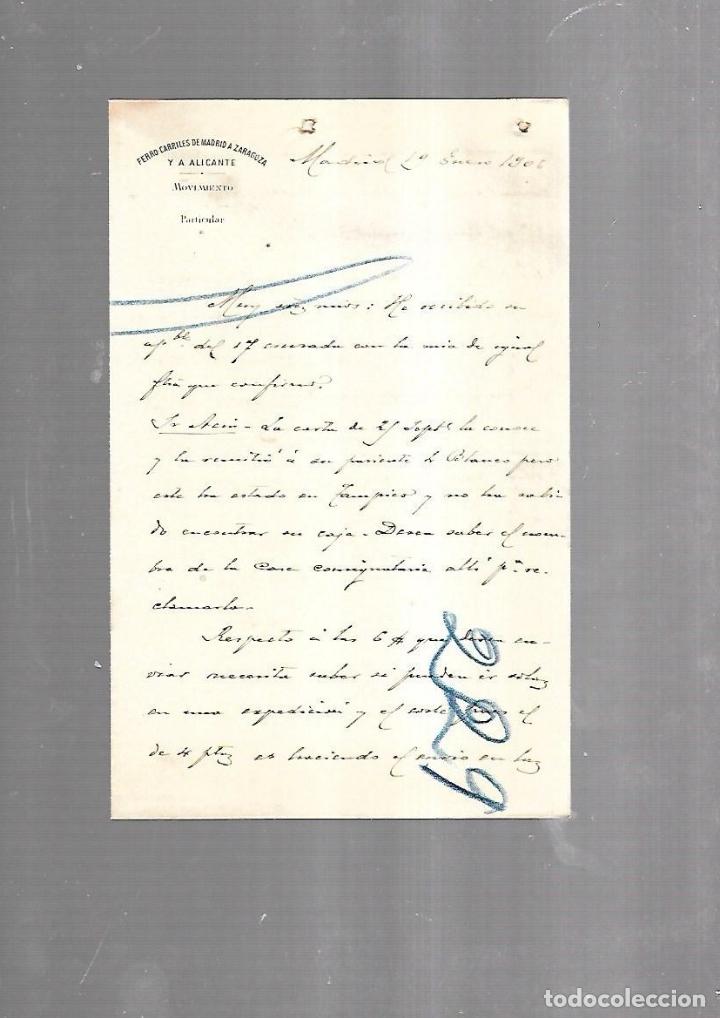 FERRO CARRILES DE MADRID A ZARAGOZA
Y A ALICANTE
MOVIMIENTO
Particular
Madrid 1º Enero 190
Muy mios: He recibido su
apble del 17 cruzada con la mia de igual
fha que confirmo.
Sr Acin - La carta de 25 Septe la conoce
y la remitió á su pariente L Blanco pero
este ha estado en Tampico y no ha sabi-
do encontrar su caja. Desea saber el nom-
bre de la Casa consignataria allí pª re-
clamarla.
Respecto á las 6 que en-
viar necesita saber si pueden ir
en una expedición y el coste pues el
de 4 ptas es haciendo el envio en
229
todocoleccion.net